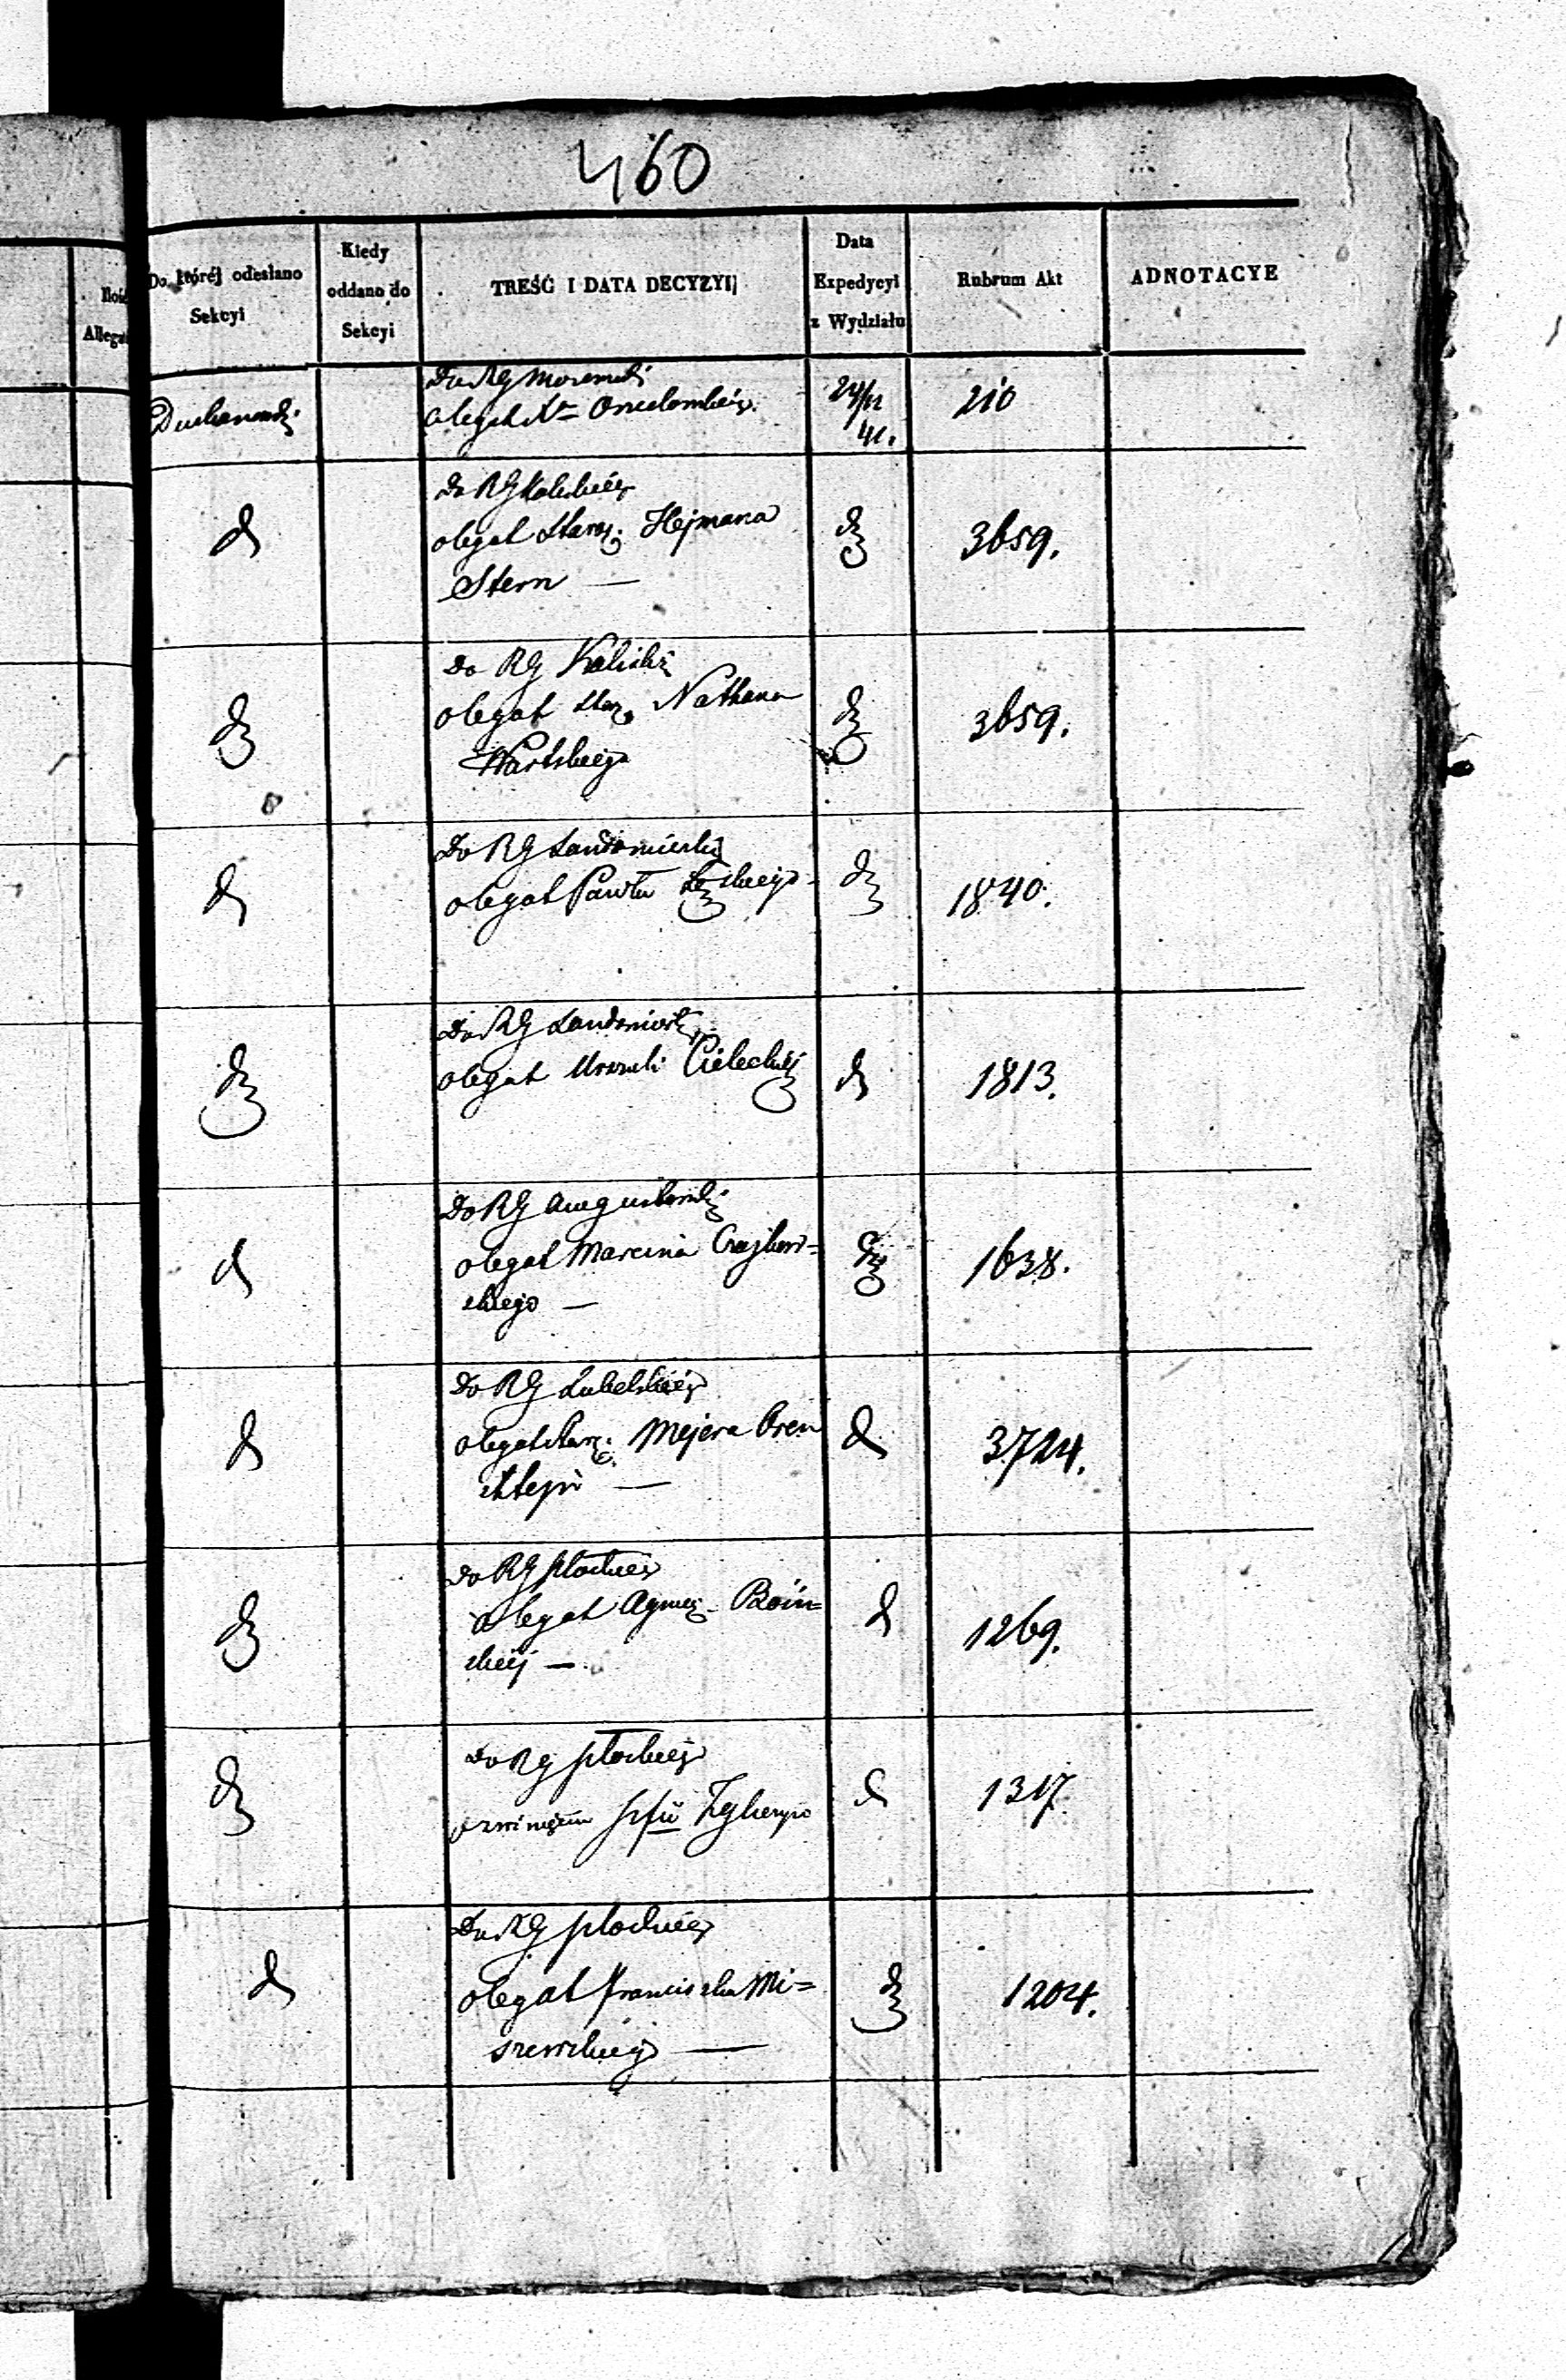 460
Ilość
Allegat
Do której odesłano
Sekcyi
Kiedy
oddano do
Sekcyi
TREŚĆ I DATA DECYZYI
Data
Expedycyi
z Wydziału
Rubrum Akt
ADNOTACYE
Do RG
o legat
24/12
41.
210
d
Do RG Kaliskiéj
o legat Staroz. Hejmana
Stern —
d
3659.
d
Do RG Kaliski
o legat Star. Nathana
Wartskiego
d
3659.
d
Do RG Sandomierski
o legat Pawła
d
1840.
d
Do RG Sandomierski
o legat Urszuli Cieleckiéj
d
1813.
d
Do RG Augustowski
o legat Marcina Czajkow=
skiego —
d
1638.
d
Do RG Lubelskiéj
o legat Staroz. Mejera
d
3724.
d
Do RG Płockiéj
o legat Agnies. Boin=
skiéj —
d
1269.
d
Do RG Płockiéj
d
1317
d
Do RG Płockiéj
o legat Franciszka Mi=
szewskiego —
d
1204.